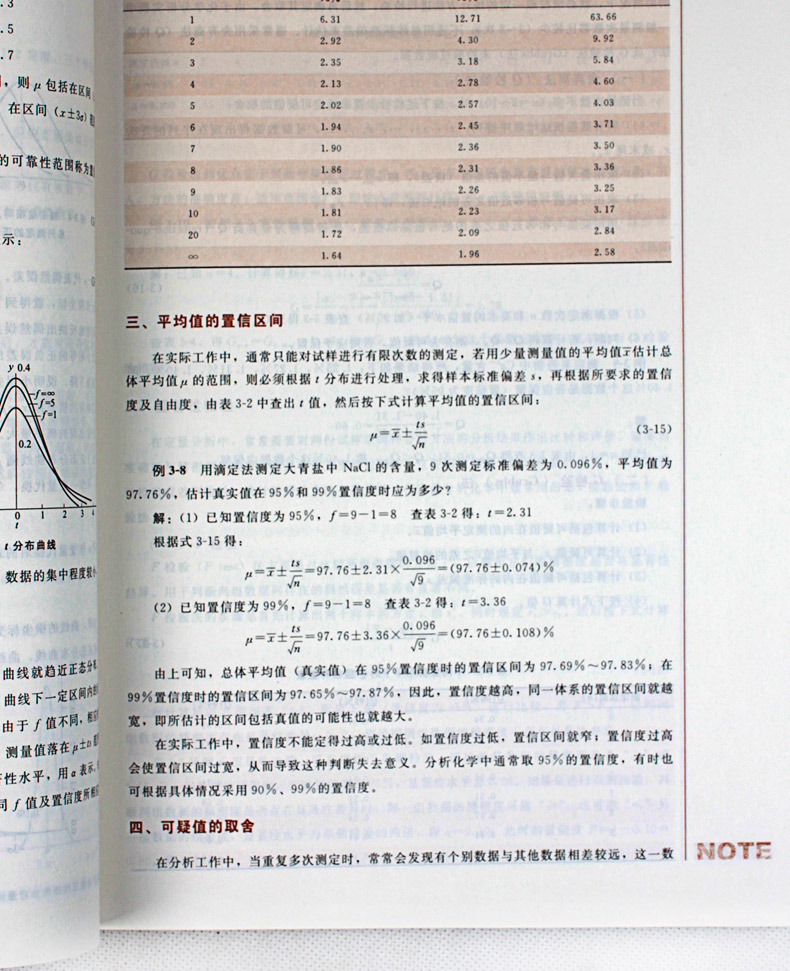 .3
.5
.7
则 μ 包括在区间
在区间（x±3σ）
的可靠性范围称为
示：
y 0.4
f=∞
f=5
f=1
0.2
0 1 2 3 4
t
t 分布曲线
数据的集中程度较
曲线就趋近正态分
曲线下一定区间内
由于 f 值不同，
测量值落在 μ±ts
性水平，用 α 表示，
同 f 值及置信度所
1 6.31 12.71 63.66
2 2.92 4.30 9.92
3 2.35 3.18 5.84
4 2.13 2.78 4.60
5 2.02 2.57 4.03
6 1.94 2.45 3.71
7 1.90 2.36 3.50
8 1.86 2.31 3.36
9 1.83 2.26 3.25
10 1.81 2.23 3.17
20 1.72 2.09 2.84
∞ 1.64 1.96 2.58
三、平均值的置信区间
在实际工作中，通常只能对试样进行有限次数的测定，若用少量测量值的平均值x̄估计总
体平均值 μ 的范围，则必须根据 t 分布进行处理，求得样本标准偏差 s，再根据所要求的置信
度及自由度，由表 3-2 中查出 t 值，然后按下式计算平均值的置信区间：
μ=x̄±ts/√n (3-15)
例 3-8 用滴定法测定大青盐中 NaCl 的含量，9 次测定标准偏差为 0.096%，平均值为
97.76%，估计真实值在 95%和 99%置信度时应为多少？
解：（1）已知置信度为 95%，f=9－1=8 查表 3-2 得：t=2.31
根据式 3-15 得：
μ=x̄±ts/√n=97.76±2.31×0.096/√9=(97.76±0.074)%
（2）已知置信度为 99%，f=9－1=8 查表 3-2 得：t=3.36
μ=x̄±ts/√n=97.76±3.36×0.096/√9=(97.76±0.108)%
由上可知，总体平均值（真实值）在 95%置信度时的置信区间为 97.69%～97.83%；在
99%置信度时的置信区间为 97.65%～97.87%，因此，置信度越高，同一体系的置信区间就越
宽，即所估计的区间包括真值的可能性也就越大。
在实际工作中，置信度不能定得过高或过低。如置信度过低，置信区间就窄；置信度过高
会使置信区间过宽，从而导致这种判断失去意义。分析化学中通常取 95%的置信度，有时也
可根据具体情况采用 90%、99%的置信度。
四、可疑值的取舍
在分析工作中，当重复多次测定时，常常会发现有个别数据与其他数据相差较远，这一数
NOTE